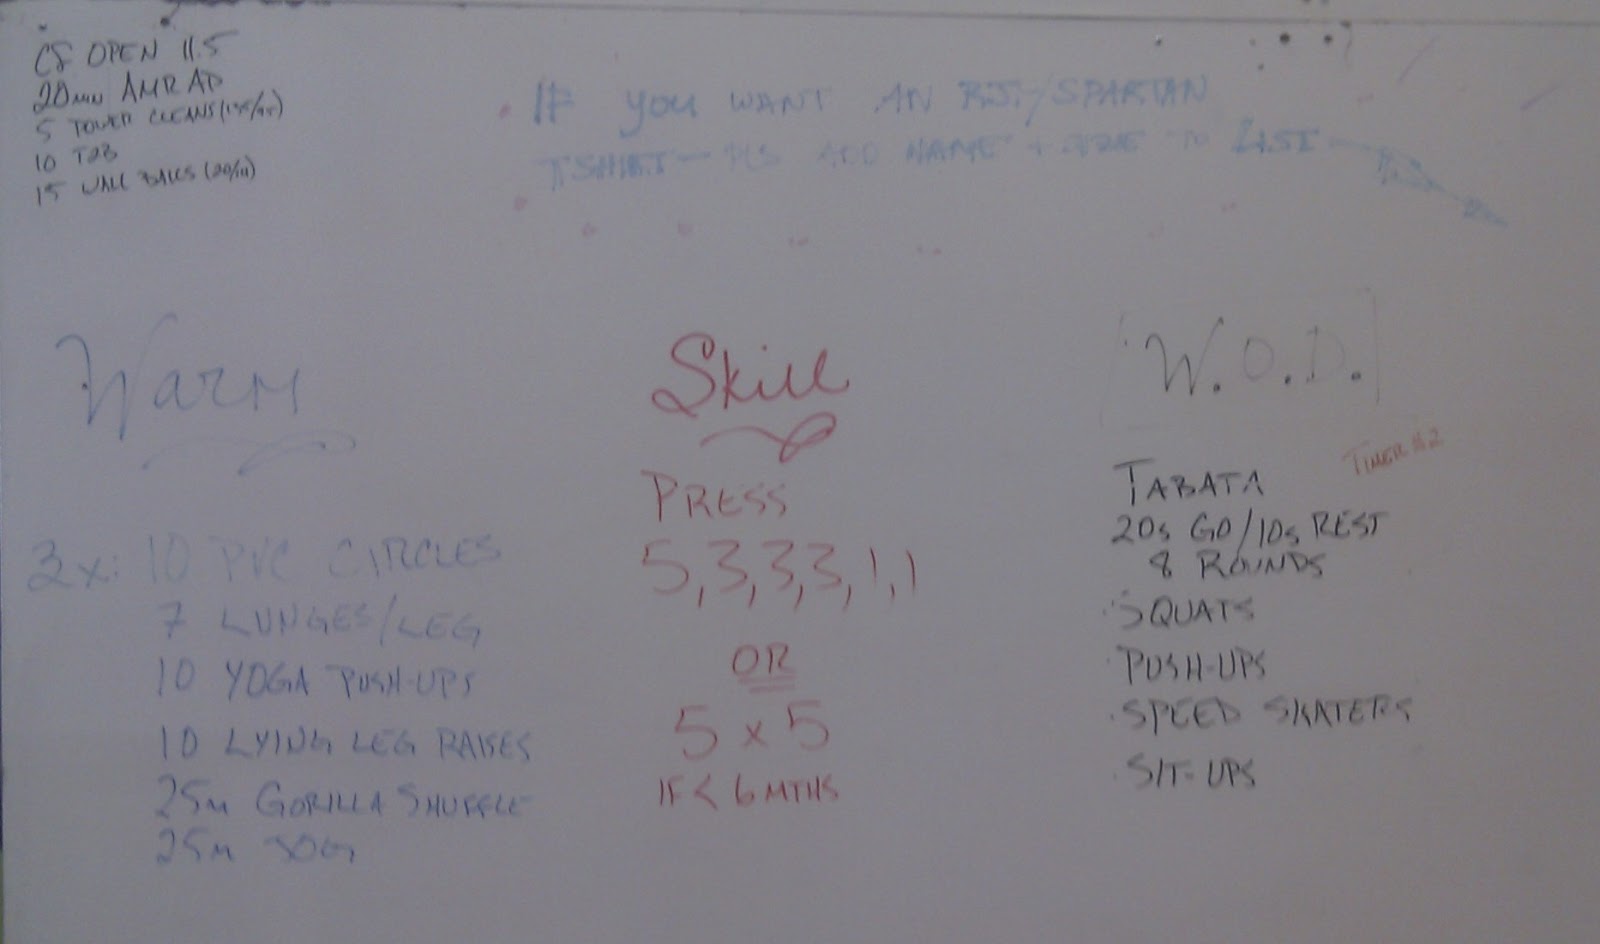 CF OPEN 11.5
20 MIN AMRAP
5 POWER CLEANS (135/95)
10 T2B
15 WALL BALLS (20/14)
IF YOU WANT AN RJJ/SPARTAN
TSHIRT — PLS ADD NAME + SIZE TO LIST
Warm
3x: 10 PVC CIRCLES
7 LUNGES/LEG
10 YOGA PUSH-UPS
10 LYING LEG RAISES
25m GORILLA SHUFFLE
25m JOG
Skill
PRESS
5,3,3,3,1,1
OR
5 x 5
IF < 6 MTHS
W.O.D.
TIMER #2
TABATA
20s GO/10s REST
8 ROUNDS
·SQUATS
·PUSH-UPS
·SPEED SKATERS
·SIT-UPS